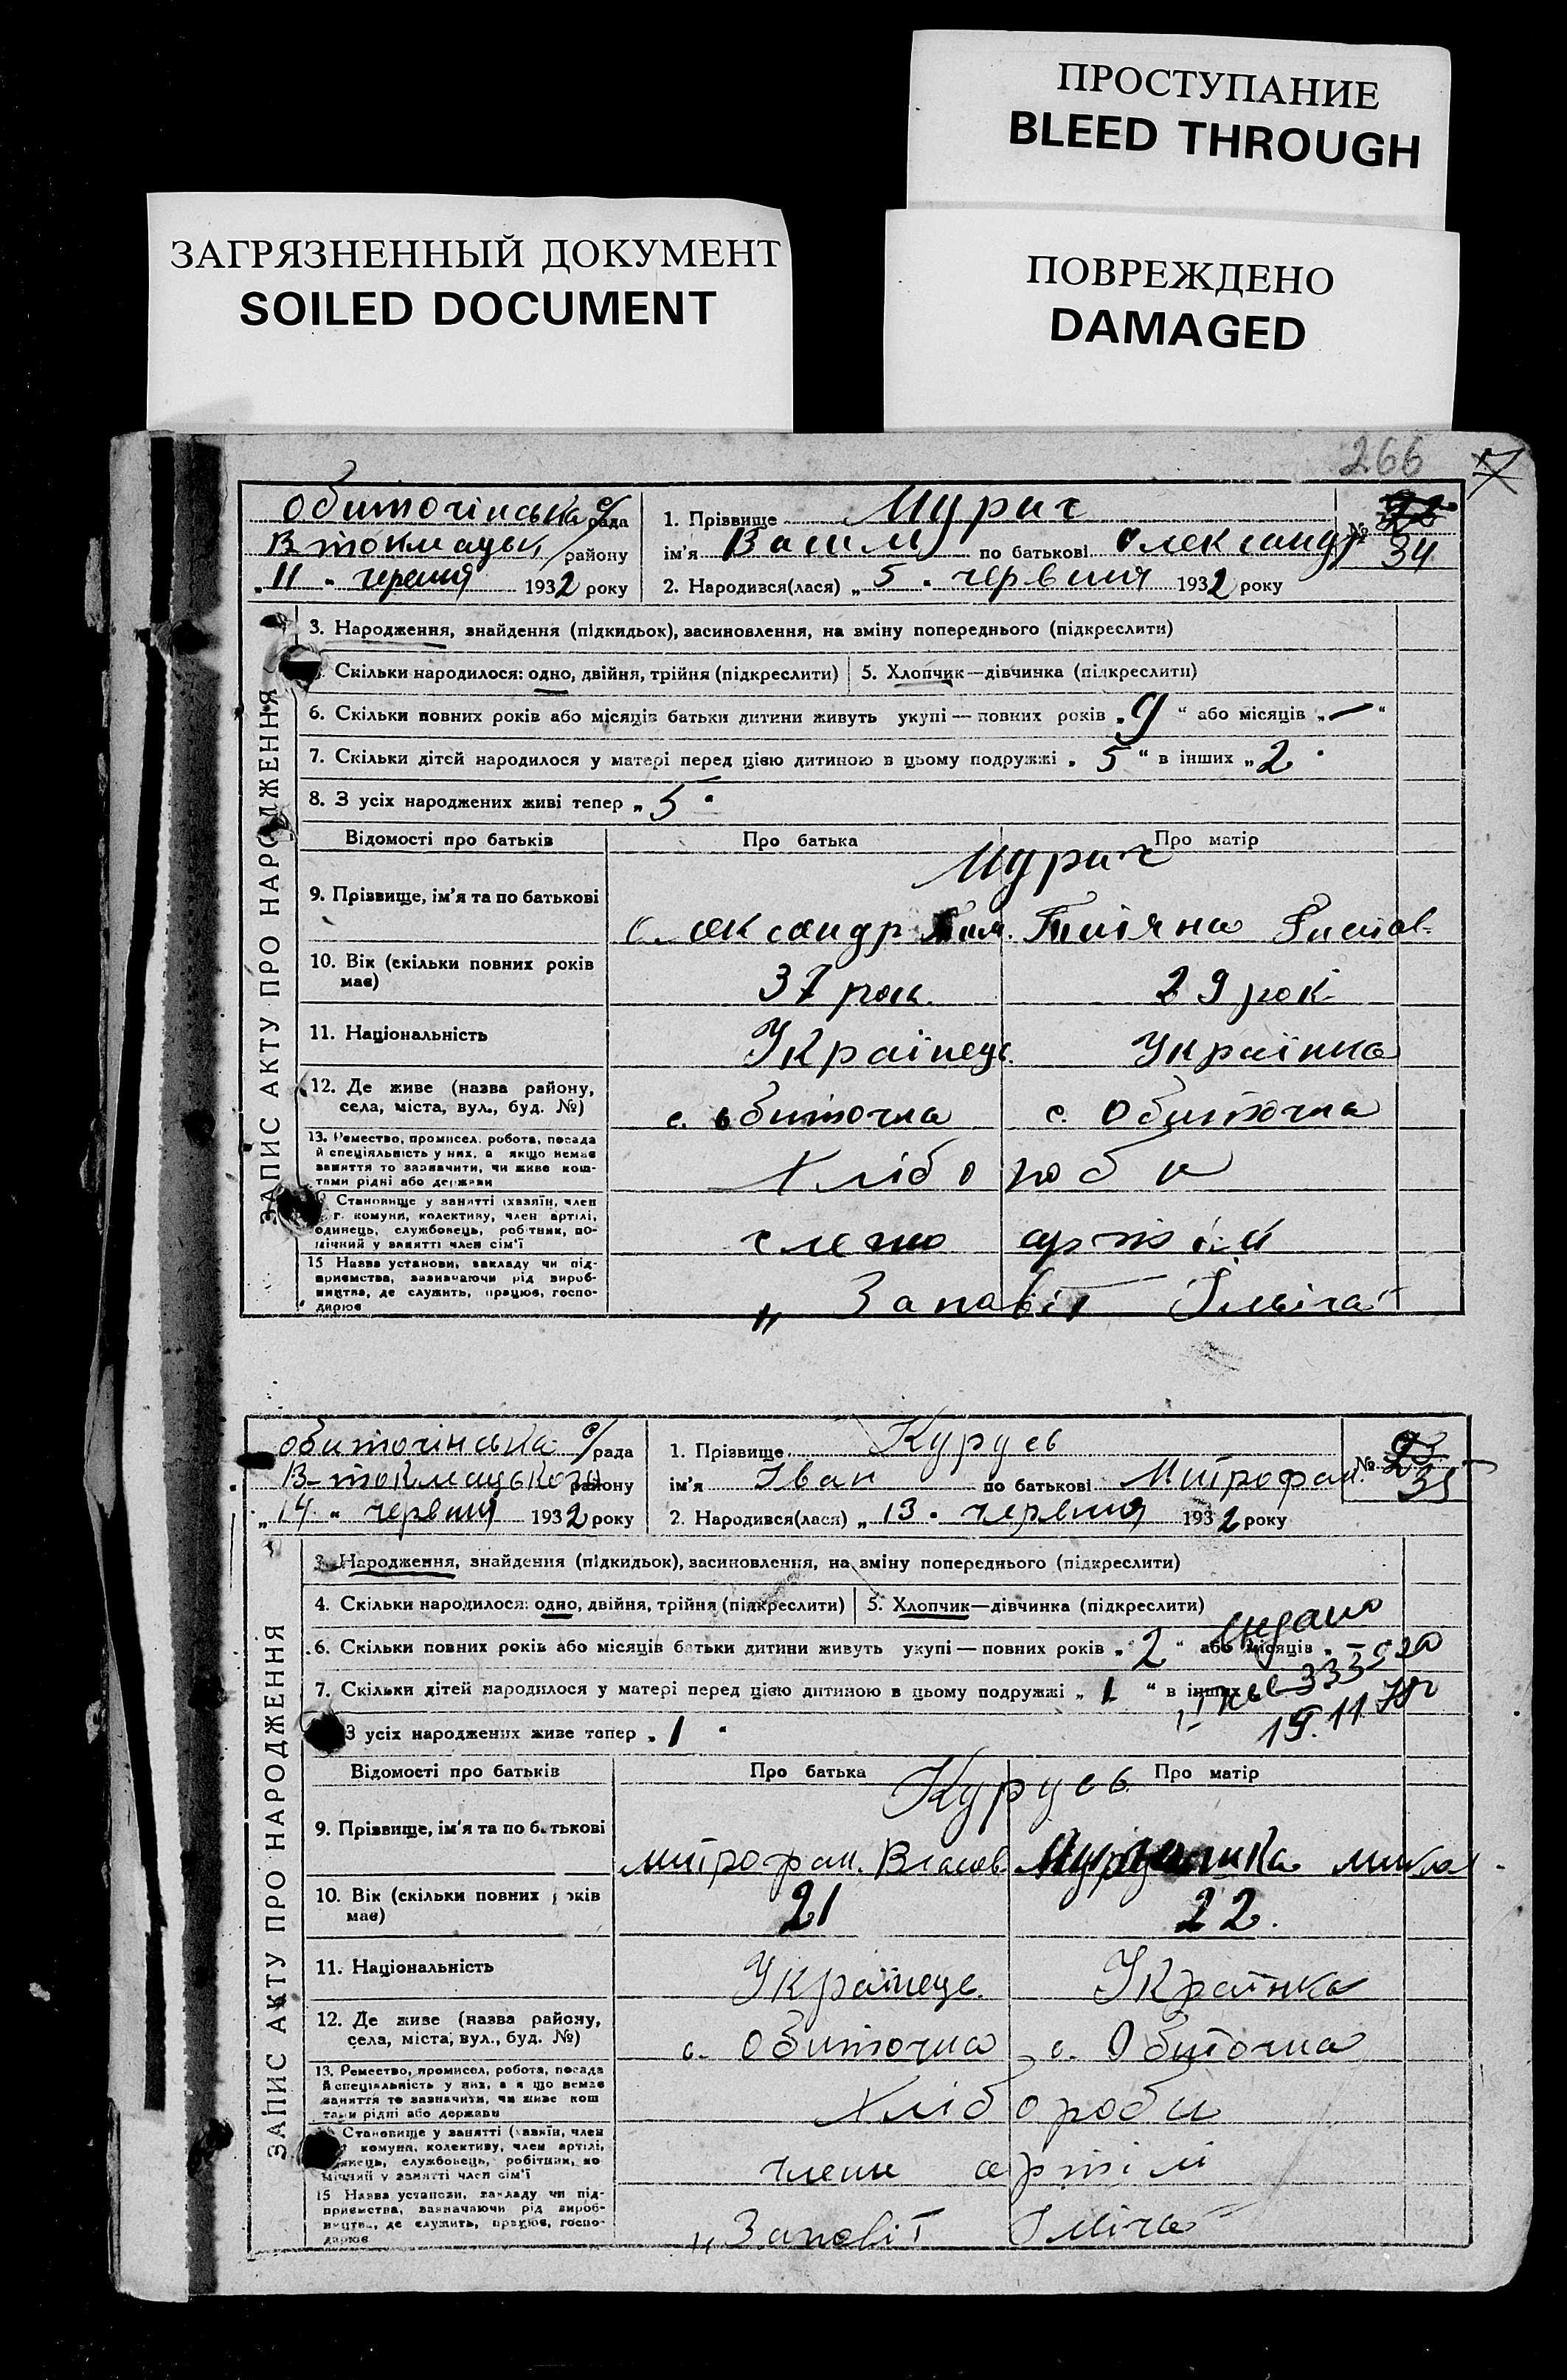 ПРОСТУПАНИЕ
BLEED THROUGH
ЗАГРЯЗНЕННЫЙ ДОКУМЕНТ
SOILED DOCUMENT
ПОВРЕЖДЕНО
DAMAGED
266
ЗАПИС АКТУ ПРО НАРОДЖЕННЯ
Обиточінська с/рада
В токмацьк району
„11“ червня 1932 року
1. Прізвище Мурич
ім'я Васил по батькові Олександр
№ 34
2. Народився(лася) „5“ червния 1932 року
3. Народження, знайдення (підкидьок), засиновлення, на зміну попереднього (підкреслити)
Скільки народилося: одно, двійня, трійня (підкреслити) 5. Хлопчик—дівчинка (підкреслити)
6. Скільки повних років або місяців батьки дитини живуть укупі — повних років „9“ або місяців „—“
7. Скільки дітей народилося у матері перед цією дитиною в цьому подружжі „5“ в інших „2“
8. З усіх народжених живі тепер „5“
Відомості про батьків Про батька Про матір
Мурич
9. Прізвище, ім'я та по батькові
Олександр Тим. Титяна
10. Вік (скільки повних років має) 37 рок. 29 рок.
11. Національність Українець Українка
12. Де живе (назва району, села, міста, вул., буд. №) с. Обиточна с. Обиточна
13. Ремество, промисел, робота, посада
й спеціяльність у них, а якщо немає
заняття то зазначити, чи живе кош-
тами рідні або держави
Хлібороби
Становище у занятті (хазяїн, член
с.-г. комуни, колективу, член артілі,
одинець, службовець, робітник, по-
мічний у занятті член сім'ї
члени артілі
15 Назва установи, закладу чи під-
приємства, зазначаючи рід вироб-
ництва, де служить, працює, госпо-
дарює
„Заповіт Ілліча“
ЗАПИС АКТУ ПРО НАРОДЖЕННЯ
Обиточінська с/рада
В-токмацького району
„14“ червния 1932 року
1. Прізвище Курусь
ім'я Іван по батькові Митрофан.
№ 35
2. Народився(лася) „13“ червния 1932 року
3. Народження, знайдення (підкидьок), засиновлення, на зміну попереднього (підкреслити)
4. Скільки народилося: одно, двійня, трійня (підкреслити) 5. Хлопчик—дівчинка (підкреслити)
6. Скільки повних років або місяців батьки дитини живуть укупі — повних років „2“ або місяців „—“
7. Скільки дітей народилося у матері перед цією дитиною в цьому подружжі „1“ в інших
19.11
З усіх народжених живе тепер „1“
Відомості про батьків Про батька Про матір
Курусь
9. Прізвище, ім'я та по батькові
Митрофан. Власов
10. Вік (скільки повних років має) 21 22.
11. Національність Українець Українка
12. Де живе (назва району, села, міста, вул., буд. №) с. Обиточна с. Обиточна
13. Ремество, промисел, робота, посада
й спеціяльність у них, а якщо немає
заняття то зазначити, чи живе кош
тами рідні або держави
Хлібороби
Становище у занятті (хазяїн, член
комуни, колективу, член артілі,
одинець, службовець, робітник, по
мічний у занятті член сім'ї
члени артілі
15 Назва установи, закладу чи під-
приємства, зазначаючи рід вироб-
ництва, де служить, працює, госпо-
дарює
„Заповіт Ілліча“